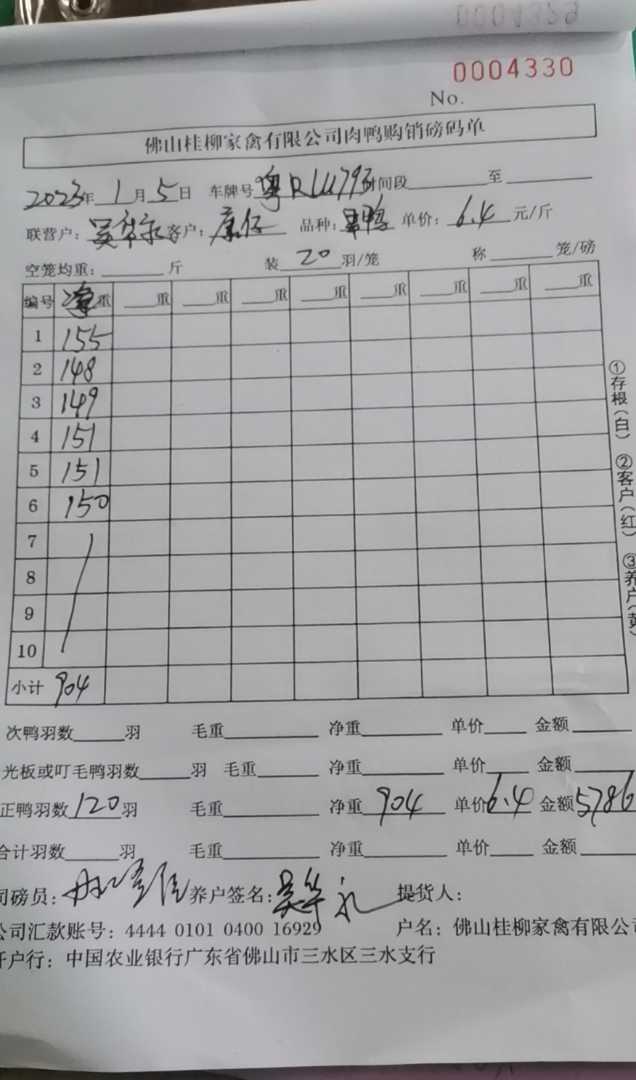 0004329
0004330
No.
佛山桂柳家禽有限公司肉鸭购销磅码单
2023年 1 月 5 日 车牌号 粤RLU793 时间段______至______
联营户: 吴华永 客户: 康仔 品种: 旱鸭 单价: 6.4 元/斤
空笼均重:______斤 装 20 羽/笼 称______笼/磅
编号 净重 ___重 ___重 ___重 ___重 ___重 ___重 ___重 ___重
1 155
2 148
3 149
4 151
5 151
6 150
7
8
9
10
小计 904
①存根(白) ②客户(红) ③养户(黄)
次鸭羽数____羽 毛重______ 净重______ 单价____ 金额____
光板或叮毛鸭羽数____羽 毛重______ 净重______ 单价____ 金额____
正鸭羽数 120 羽 毛重______ 净重 904 单价 6.4 金额 5786
合计羽数____羽 毛重______ 净重______ 单价____ 金额____
司磅员: 养户签名: 吴华永 提货人:
公司汇款账号: 4444 0101 0400 16929 户名: 佛山桂柳家禽有限公司
开户行: 中国农业银行广东省佛山市三水区三水支行